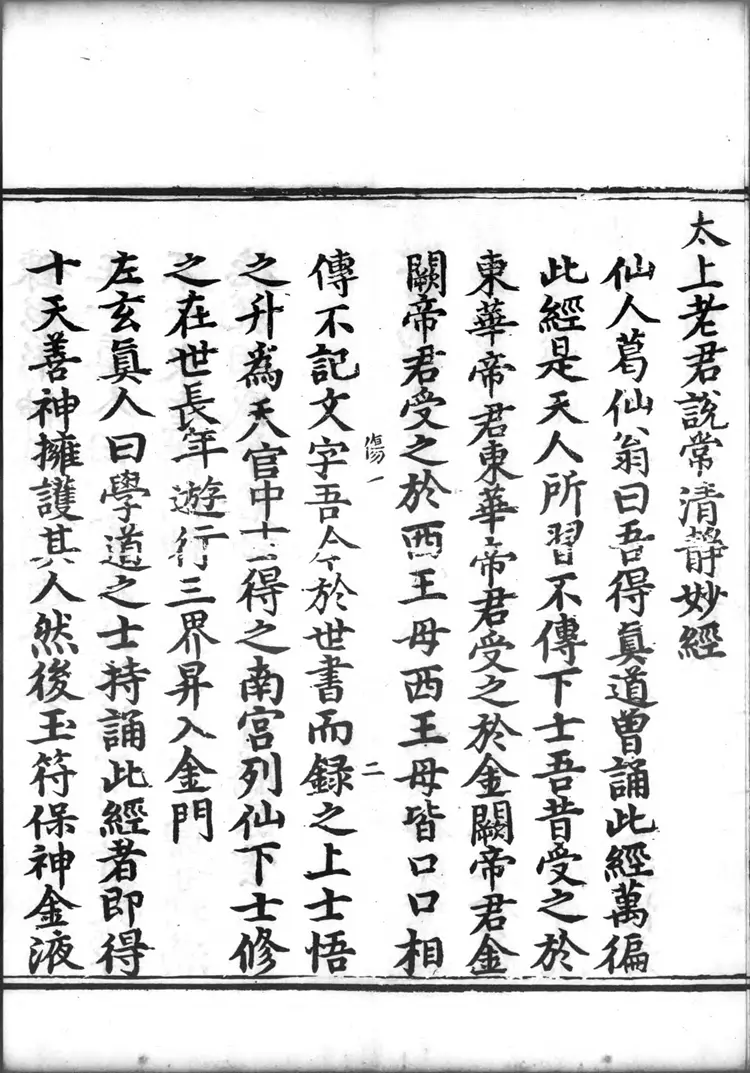 太上老君說常清靜妙經
仙人葛仙翁曰吾得眞道曾誦此經萬徧
此經是天人所習不傳下士吾昔受之於
東華帝君東華帝君受之於金闕帝君金
闕帝君受之於西王母西王母皆口口相
傷一 二
傳不記文字吾今於世書而録之上士悟
之升爲天官中士得之南宮列仙下士修
之在世長年遊行三界昇入金門
左玄眞人曰學道之士持誦此經者即得
十天善神擁護其人然後玉符保神金液